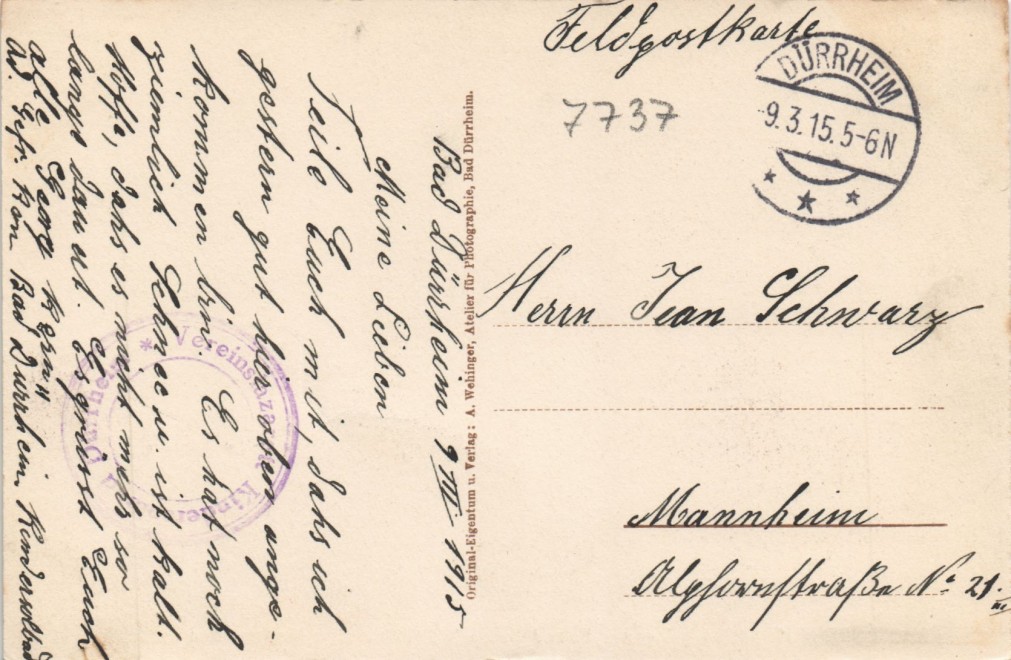 Feldpostkarte
7737
DÜRRHEIM
9.3.15.5-6N
Herrn Jean Schwarz
Mannheim
Alphornstraße No 21.
III
Original-Eigentum u. Verlag: A. Wehinger, Atelier für Photographie, Bad Dürrheim.
Bad Dürrheim 9 III 1915
Meine Lieben
Teile Euch mit, dahs ich
gestern gut hier oben ange-
kommen bin. Es hat noch
ziemlich Schnee u. ist kalt.
Hoffe, dahs es nicht mehr so
lange dauert. Es grüsst Euch
alle Georg
Ad. Gefr. Bad Dürrheim Kindersolbad
* Vereinslazarett Kindersolbad Dürrheim